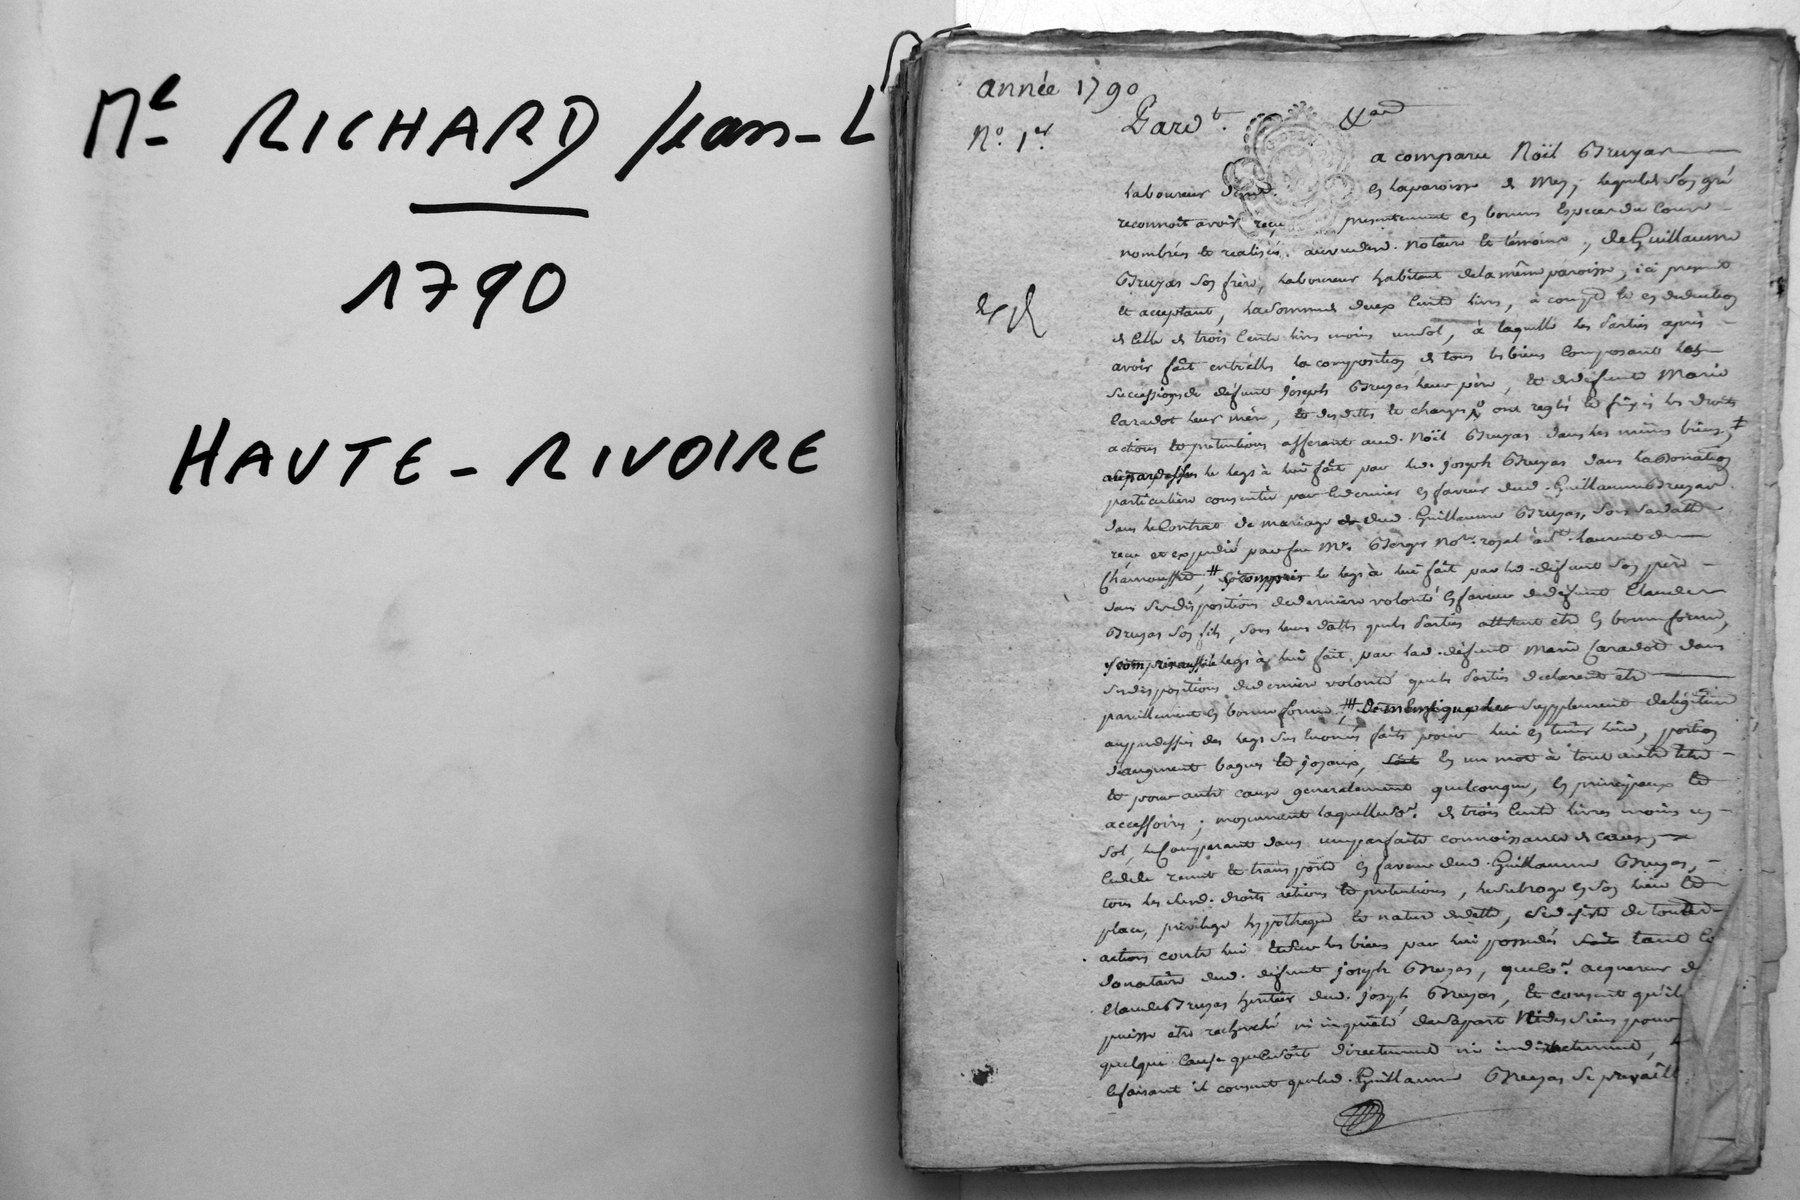 Me RICHARD Jean-L
1790
HAUTE-RIVOIRE
année 1790
N.o 1.er
Pard.t
a comparu Noël Bruyas
laboureur en la paroisse de Mey, lequel de son gré
reconnoit avoir reçu presentement en bonnes Especes du Cours
nombrés et realisés notaire et témoins, de Guillaume
Bruyas son frère, laboureur habitant de la même paroisse, ici present
et acceptant, la somme deux Cents livres, à compte et en deduction
de Celle de trois Cents livres moins un sol, à laquelle les parties après
avoir fait entr'elles la composition de tous les biens Composants les
successions de défunt joseph Bruyas leur père, et de defunte Marie
Caradot leur mère, et des dettes et charges, ont reglés et fixés les droits
actions et pretentions afferant aud. Noël Bruyas dans les mêmes biens,
le legs à lui fait par led. joseph Bruyas dans la Donation
particulière consentie par ce dernier en faveur dud. Guillaume Bruyas
dans le Contrat de mariage dud. Guillaume Bruyas, sous sa datte
reçu et expedié par feu Me. Berger No.re royal à St. Laurent de
Chamousset, # y compris le legs à lui fait par led. defunt son père
dans ses dispositions de dernière volonté en faveur de defunt Claude
Bruyas son fils, sous leurs dattes que les parties attestent etre en bonne forme,
y compris aussi le legs à lui fait par lad. defunte Marie Caradot dans
ses dispositions de dernière volonté que les parties declarent etre
pareillement en bonne forme, # supplement de légitime
au pardessus des legs sus Enoncés faits pour lui en tenir lieu, portion
d'augment bagues et joyaux, en un mot à tout autre titre
et pour autre cause generalement quelconque, en principaux et
accessoires; moyennant laquelle se. de trois Cents livres moins un
sol, le Comparant dans une parfaite connoissance de cause,
Cede remet et transporte en faveur dud. Guillaume Bruyas,
tous les susd. droits actions et pretentions, le subroge en son lieu et
place, privilege hypotheque et nature de dette, se desiste de toutes
actions contre lui et sur les biens par lui possedés tant Co
donataire dud. defunt joseph Bruyas, que Co.e acquereur d
Claude Bruyas heritier dud. joseph Bruyas, et consent qu'il
puisse etre recherché ni inquiété de sa part ni des siens pour
quelque Cause que ce soit directement ni indirectement,
Ce faisant il consent que led. Guillaume Bruyas se prevaill